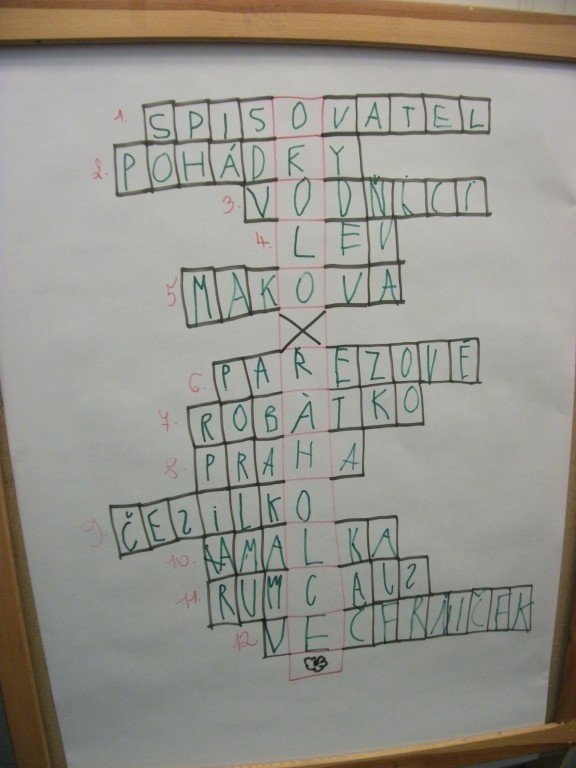 1. SPISOVATEL
2. POHÁDKY
3. VODŇÍCI
4. LEV
5 MAKOVA
6. PAŘEZOVÉ
7. ROBÁTKO
8. PRAHA
9. ČEZILKO
10. AMALKA
11. RUMCAIS
12 VEČERNIČEK